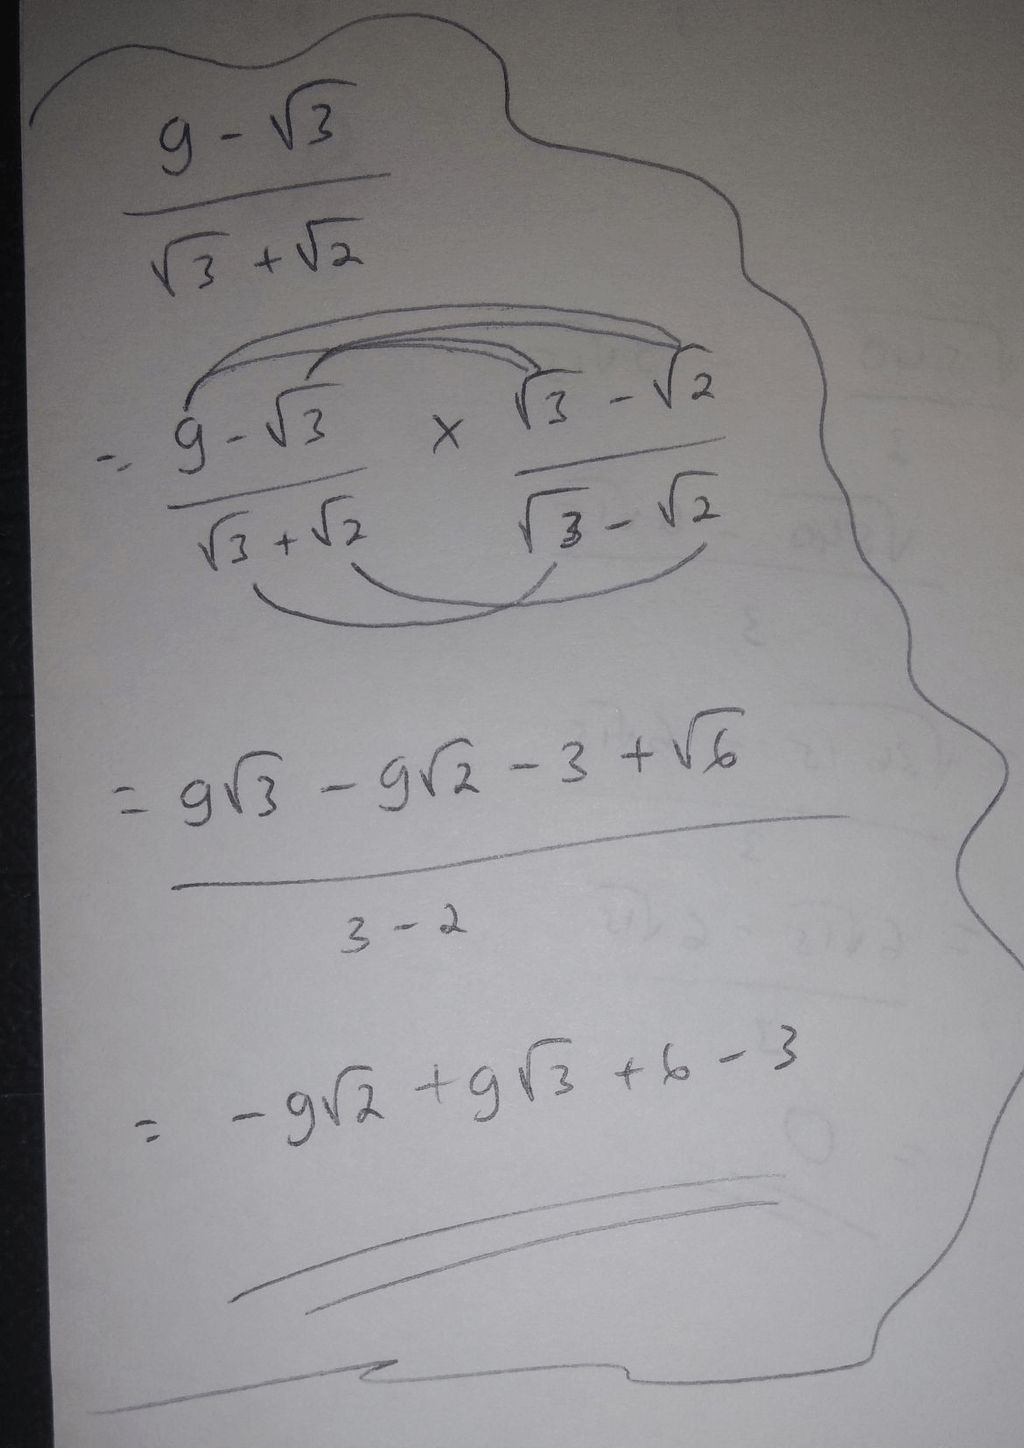 9 - √3
√3 + √2
= 9 - √3 × √3 - √2
√3 + √2 √3 - √2
= 9√3 - 9√2 - 3 + √6
3 - 2
= -9√2 + 9√3 + 6 - 3